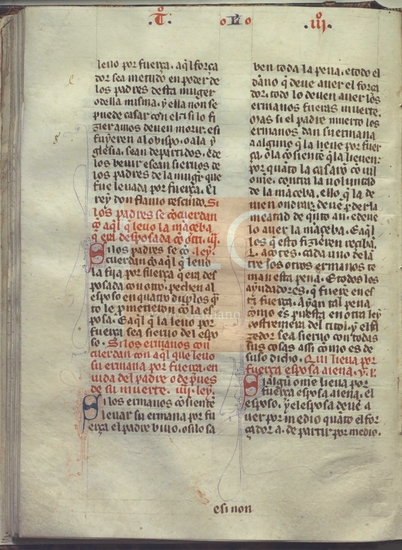 T. o Pº iij.
leuo por fuerça. aq̃l força
dor sea metido en poder de
los padres desta muger
o della misma. y ella non se
puede casar con el: i si lo fi
zier amos deuen morir. e si
fuyeren al obispo. o a la y
glesia. sean departidos. e de
los padres de la muger que
fue leuada por fuerça. El
rey don flauio rescindo. Si
los padres se cõcuerdan
cõ aq̃l q̃ leuo la
Si los padres se cõ
cuerdan cõ aq̃l q̃ leuo
la fija por fuerça q̃ era des
posada con otro. pechen al
esposo en quatro duplos q̃ã
to le prometieron cõ la es
posa. E aq̃l q̃ la leuo por
fuerça sea sieruo del espo
so. Si los ermanos con
cuerdan con aq̃l que leuo
su ermana por fuerça. en
uida del padre o despues
de su muerte. iiij. ley.
Si los ermanos cõsiente
leuar su ermana por fu
erça el padre biuo. o si lo sa
ben toda la pena. e todo el
daño q̃ deue auer el força
dor. todo lo deuen auer los
ermanos fueras muerte.
mas si el padre muerto los
ermanos dan su ermana
a alguno q̃ la lieue por fuer
ça. o lo cõsiente q̃ la lieuen:
por quanto la casarõ cõ uil
ome. contra la voluntad
de la manceba. ello q̃ la de
uen ondrar: deue perder la
meatad de quanto an. e den
lo auer la manceba. E aq̃l
los q̃ esto fizieren reciba.
L. açotes. cada uno de la
tre los otros ermanos te
man esta pena. E todos los
ayudadores. q̃ fuere en es
ta fuerça. ayan tal pena
como es puesta en otra ley
postremera del titol. y el fa
zedor sea sieruo con todas
sus cosas assi como es de
suso dicho. Qui lieua por
fuerça esposa aiena. v. l.
Si algũ ome lieua por
fuerça esposa aiena. el
esposo. y el esposa deue a
uer por medio quanto el for
çador a. de partir por medio.
e si non